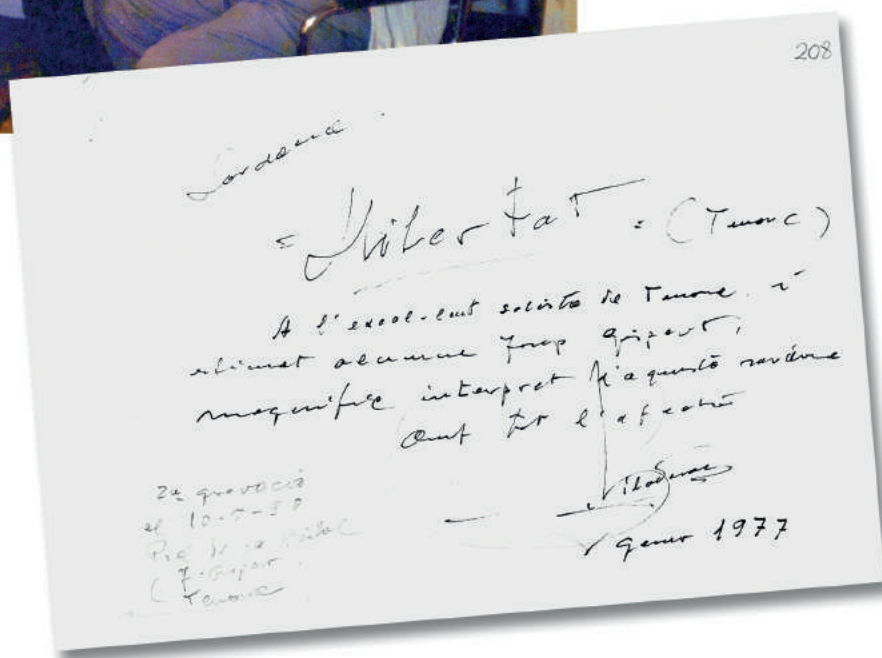 208
Sardana
= Llibertat = (Tenora)
A l'excel·lent solista de Tenora i
estimat alumne Josep Gispert,
magnífic intèrpret d'aquesta sardana
Amb tot l'afecte
gener 1977
2a gravació
el 10-5-
(J. Gispert
Tenora